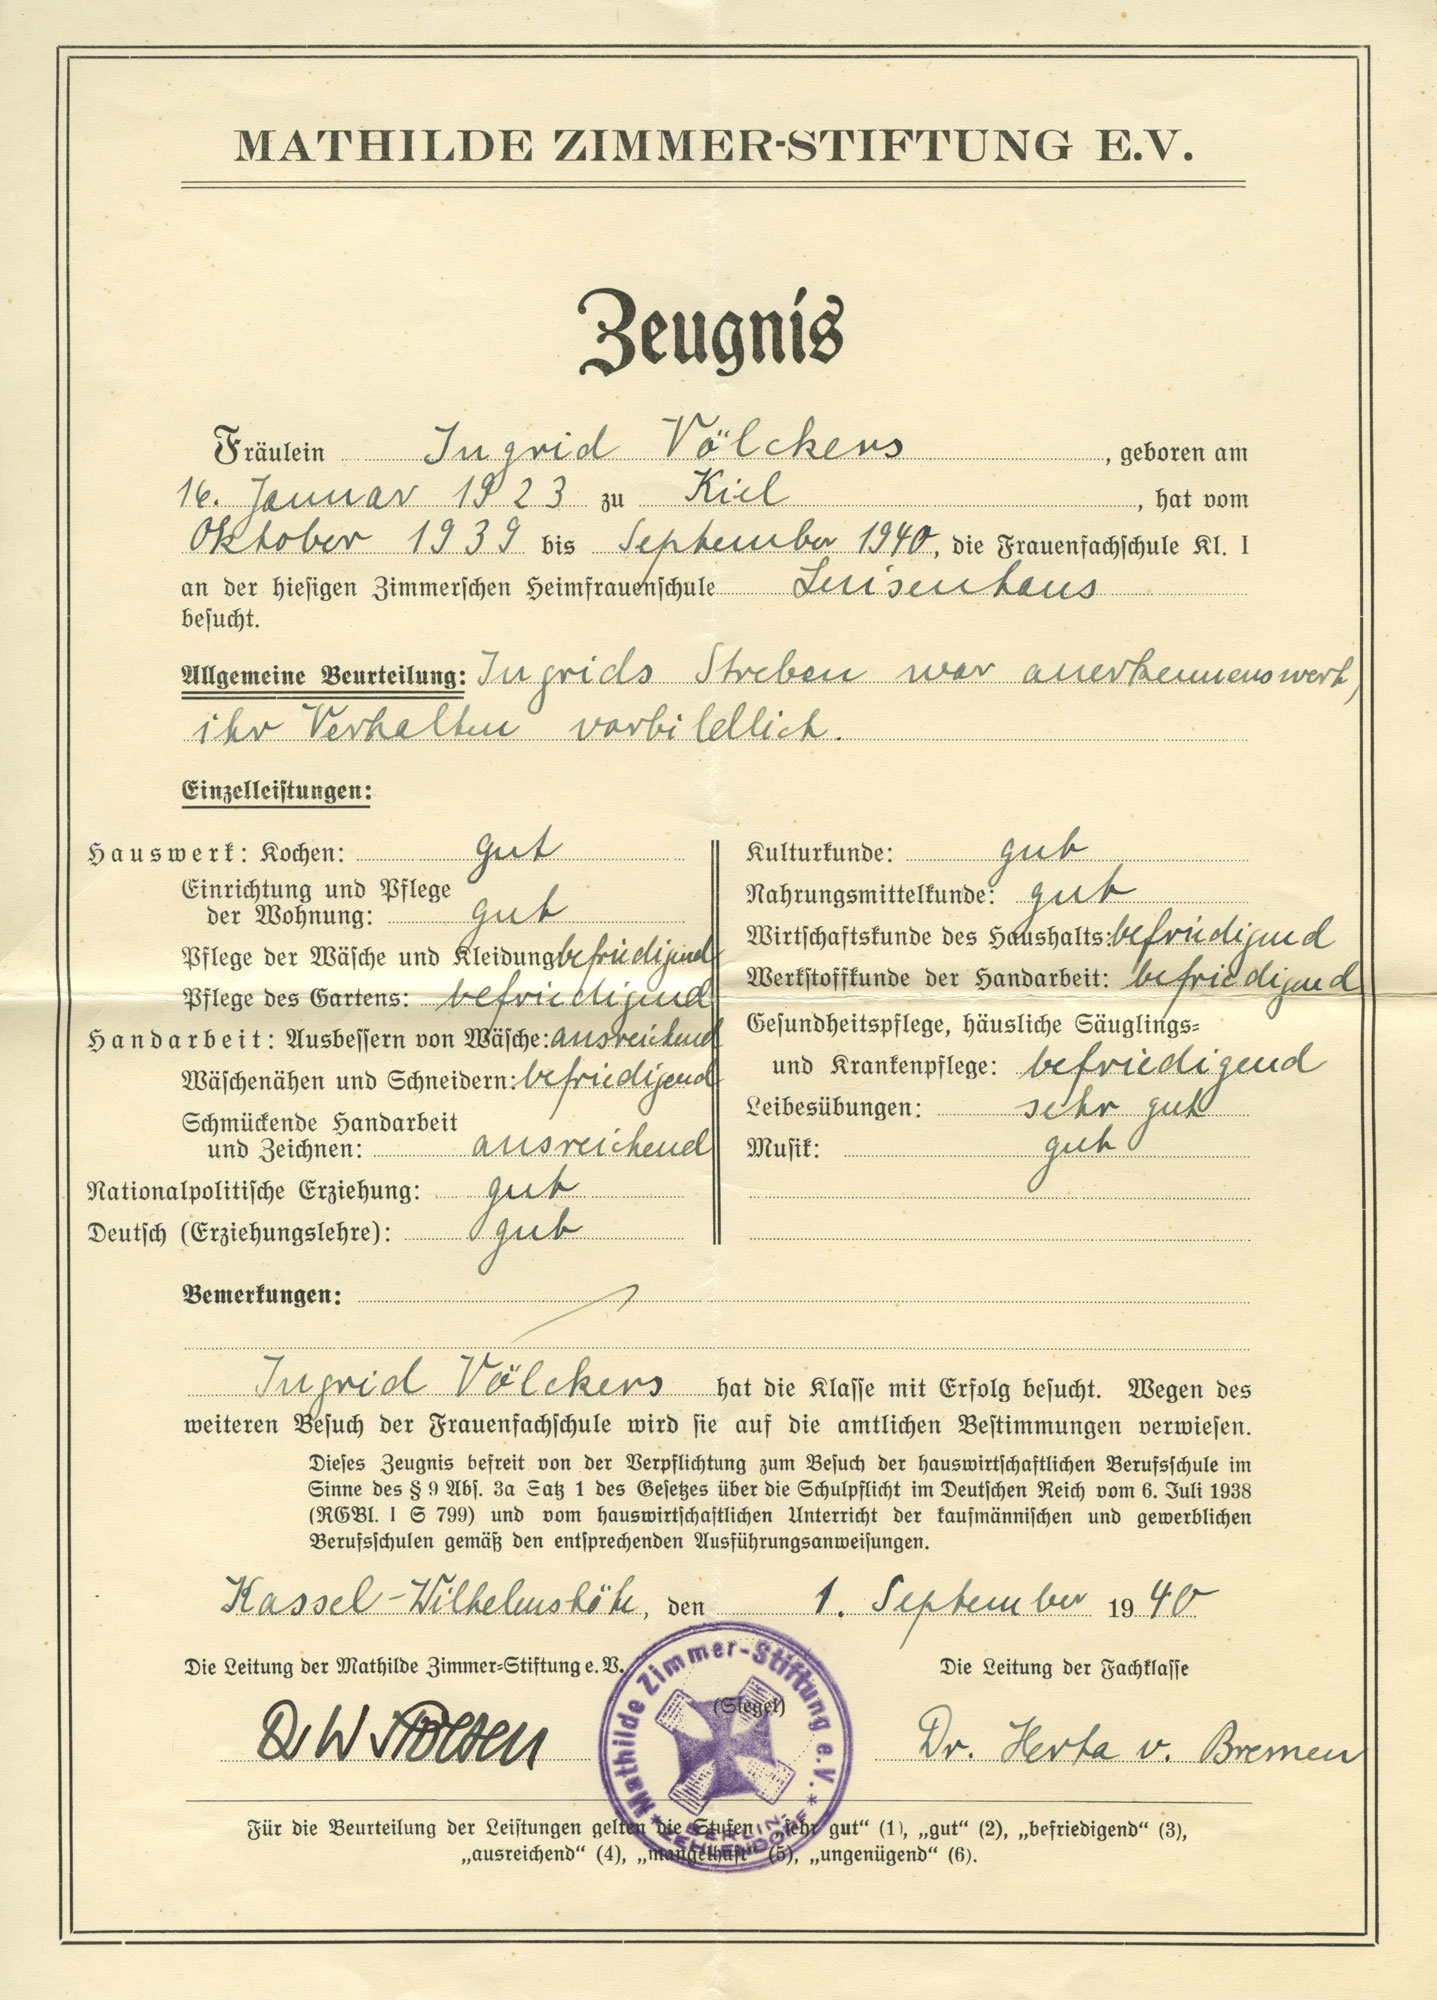 MATHILDE ZIMMER-STIFTUNG E.V.
Zeugnis
Fräulein Ingrid Völckers, geboren am
16. Januar 1923 zu Kiel, hat vom
Oktober 1939 bis September 1940, die Frauenfachschule Kl. I
an der hiesigen Zimmerschen Heimfrauenschule Luisenhaus
besucht.
Allgemeine Beurteilung: Ingrids Streben war anerkennenswert,
ihr Verhalten vorbildlich.
Einzelleistungen:
Hauswerk: Kochen: gut
Einrichtung und Pflege
der Wohnung: gut
Pflege der Wäsche und Kleidung befriedigend
Pflege des Gartens: befriedigend
Handarbeit: Ausbessern von Wäsche: ausreichend
Wäschenähen und Schneidern: befriedigend
Schmückende Handarbeit
und Zeichnen: ausreichend
Nationalpolitische Erziehung: gut
Deutsch (Erziehungslehre): gut
Kulturkunde: gut
Nahrungsmittelkunde: gut
Wirtschaftskunde des Haushalts: befriedigend
Werkstoffkunde der Handarbeit: befriedigend
Gesundheitspflege, häusliche Säuglings-
und Krankenpflege: befriedigend
Leibesübungen: sehr gut
Musik: gut
Bemerkungen:
Ingrid Völckers hat die Klasse mit Erfolg besucht. Wegen des
weiteren Besuch der Frauenfachschule wird sie auf die amtlichen Bestimmungen verwiesen.
Dieses Zeugnis befreit von der Verpflichtung zum Besuch der hauswirtschaftlichen Berufsschule im
Sinne des § 9 Abs. 3a Satz 1 des Gesetzes über die Schulpflicht im Deutschen Reich vom 6. Juli 1938
(RGBl. I S 799) und vom hauswirtschaftlichen Unterricht der kaufmännischen und gewerblichen
Berufsschulen gemäß den entsprechenden Ausführungsanweisungen.
Kassel-Wilhelmshöhe, den 1. September 1940
Die Leitung der Mathilde Zimmer-Stiftung e. V.
Die Leitung der Fachklasse
(Siegel)
Mathilde Zimmer-Stiftung e.V.
BERLIN-
ZEHLENDORF
Dr. Herta v. Bremen
Für die Beurteilung der Leistungen gelten die Stufen „sehr gut“ (1), „gut“ (2), „befriedigend“ (3),
„ausreichend“ (4), „mangelhaft“ (5), „ungenügend“ (6).